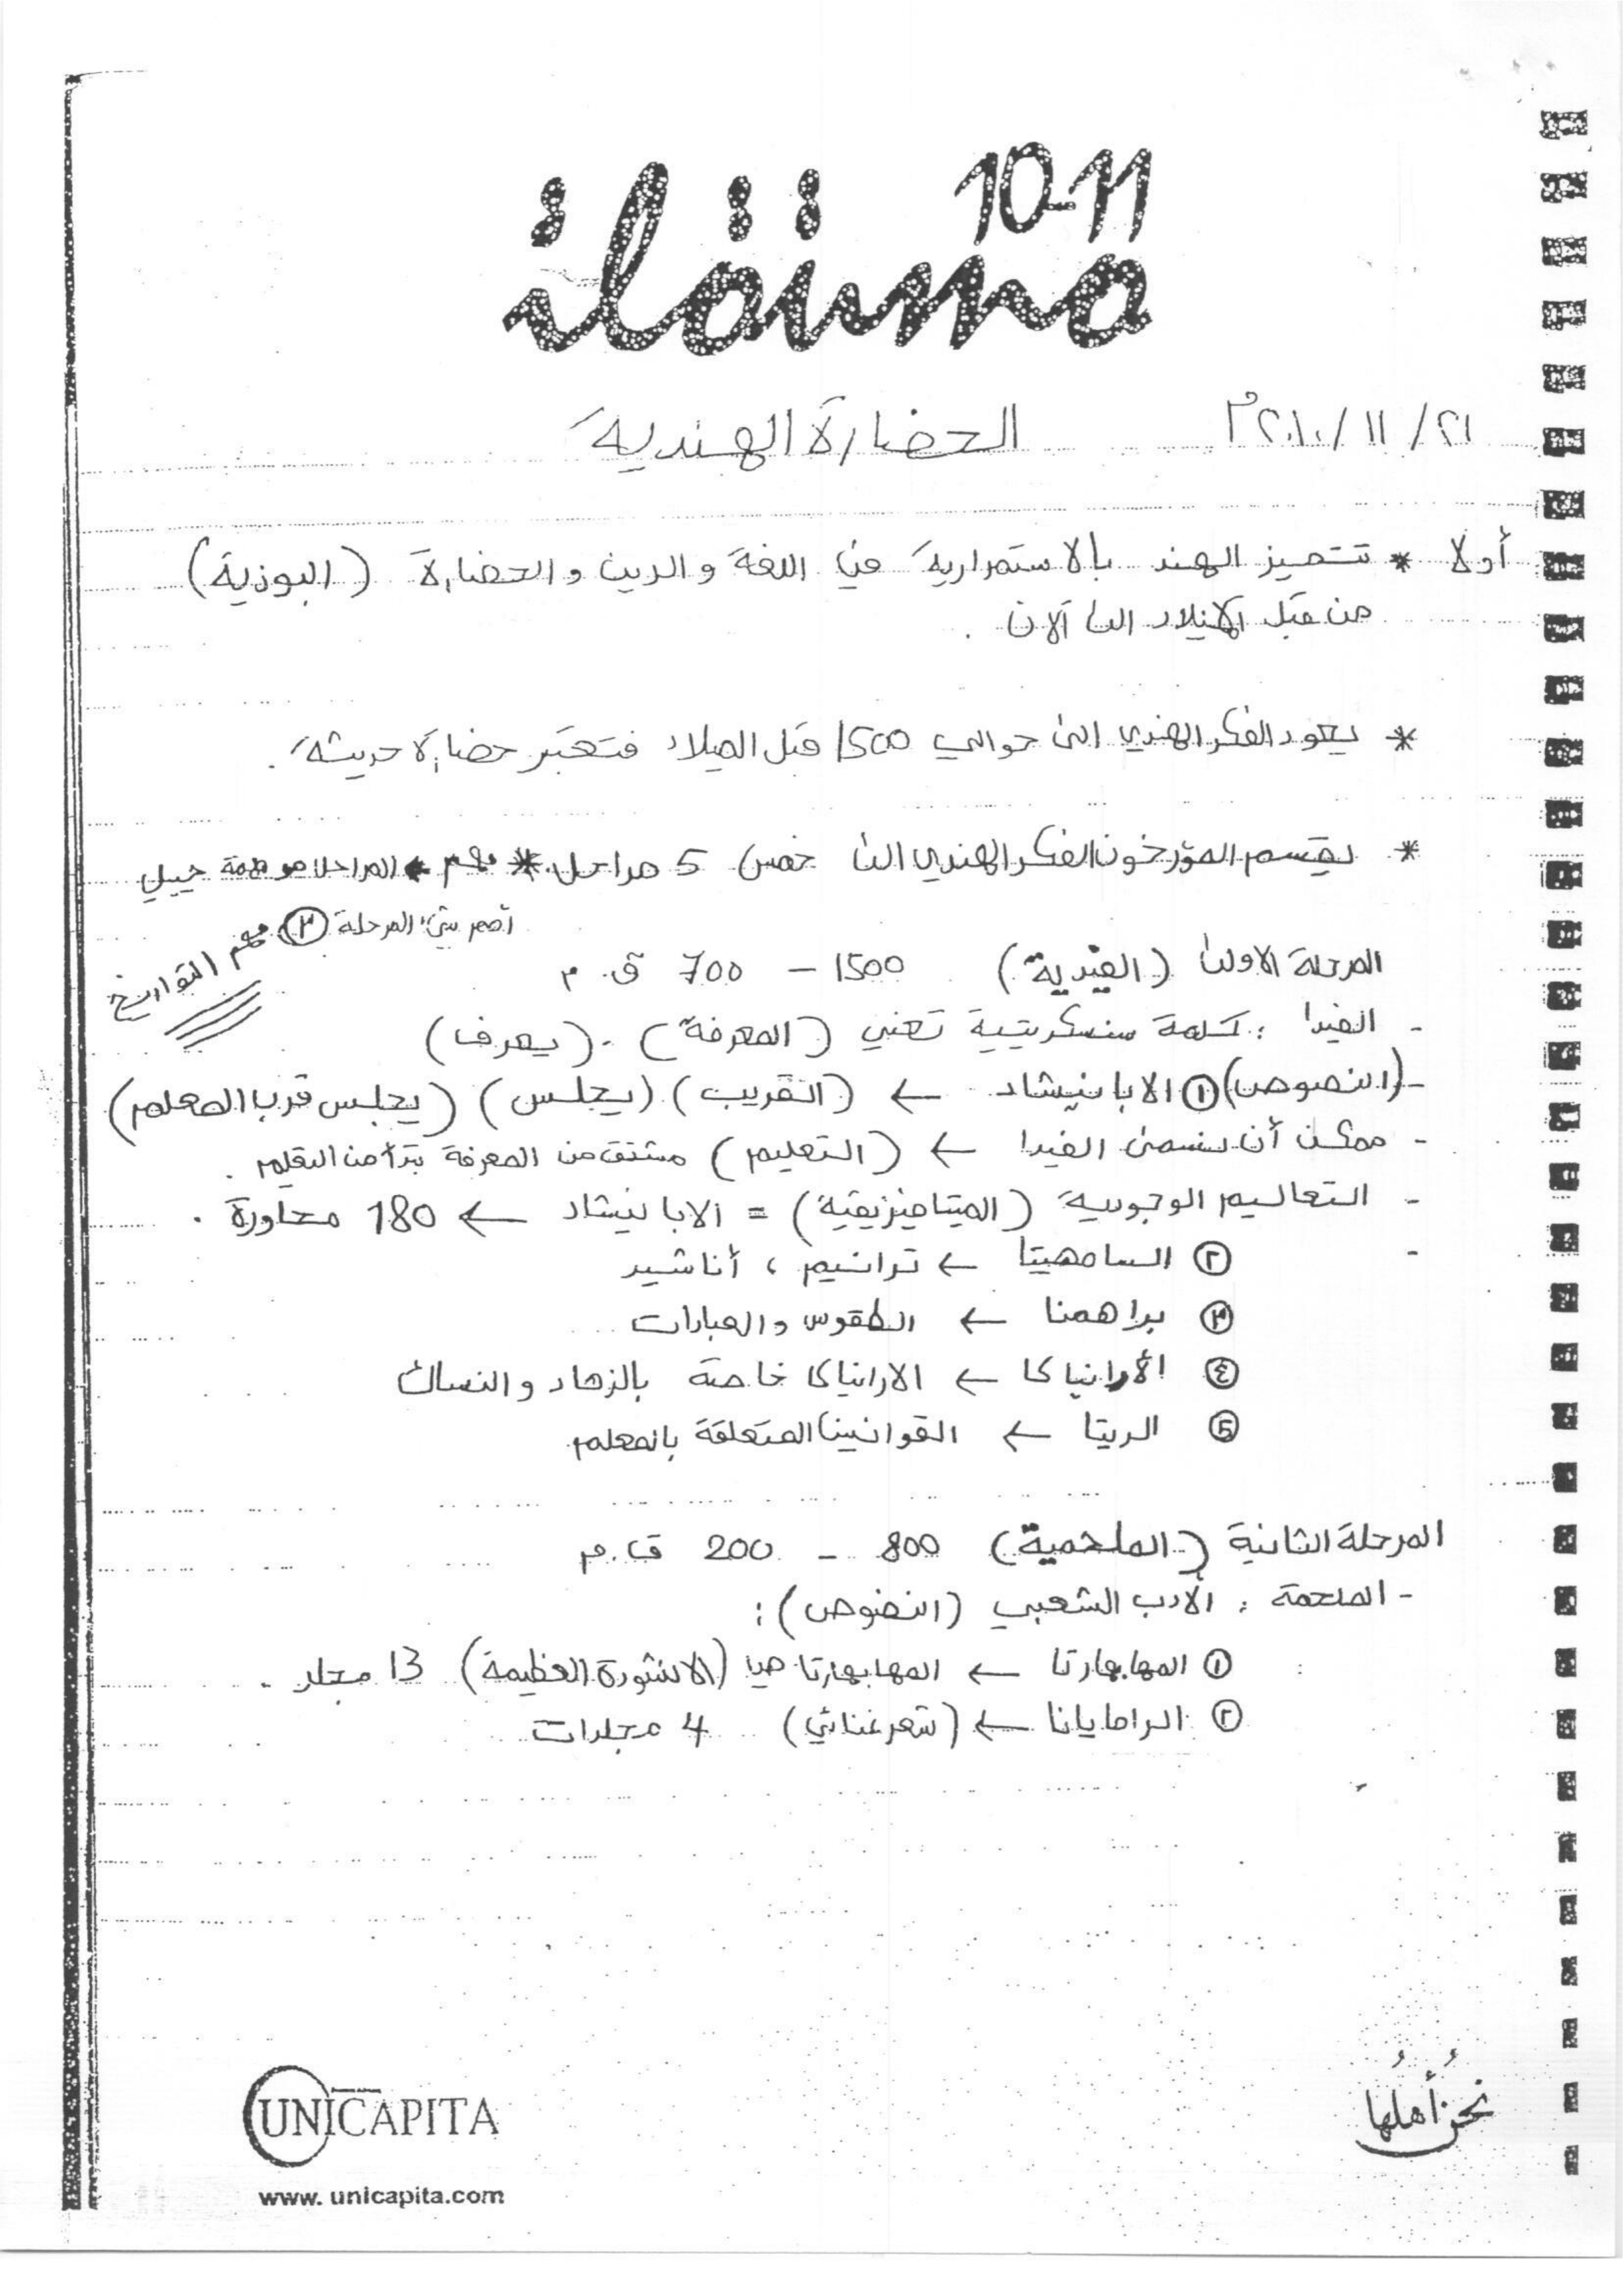 10-11
٢١ / ١١ / ٢٠١٠م الحضارة الهندية
أولا * تتميز الهند بالاستمرارية في اللغة والدين والحضارة (البوذية)
من قبل الميلاد الى الآن .
* يعود الفكر الهندي الى حوالي 1500 قبل الميلاد فتعتبر حضارة حديثة .
* يقسم المؤرخون الفكر الهندي الى خمس 5 مراحل * مهم المراحل مو مهمة
أهم شيء المرحلة ٢ مهم التواريخ
المرحلة الاولى (الفيدية) 1500 – 700 ق.م
- الفيدا : كلمة سنسكريتية تعني (المعرفة) . (يعرف)
- (النصوص) ① الابانيشاد ← (القريب) (يجلس) (يجلس قرب المعلم)
- ممكن أن نسمى الفيدا ← (التعليم) مشتق من المعرفة تبدأ من التعليم .
- التعاليم الوجودية (الميتافيزيقية) = الابانيشاد ← 180 محاورة .
- ② السامهيتا ← ترانيم ، أناشيد
③ براهمنا ← الطقوس والعبادات
④ الأرانياكا ← الارانياكا خاصة بالزهاد والنساك
⑤ الريتا ← القوانين المتعلقة بالمعلم
المرحلة الثانية (الملحمية) 800 – 200 ق.م
- الملحمة : الأدب الشعبي (النصوص) :
① المهابهارتا ← المهابهارتا هي (الانشودة العظيمة) 13 مجلد .
② الرامايانا ← (شعر غنائي) 4 مجلدات
نحن أهلها
UNICAPITA
www. unicapita.com